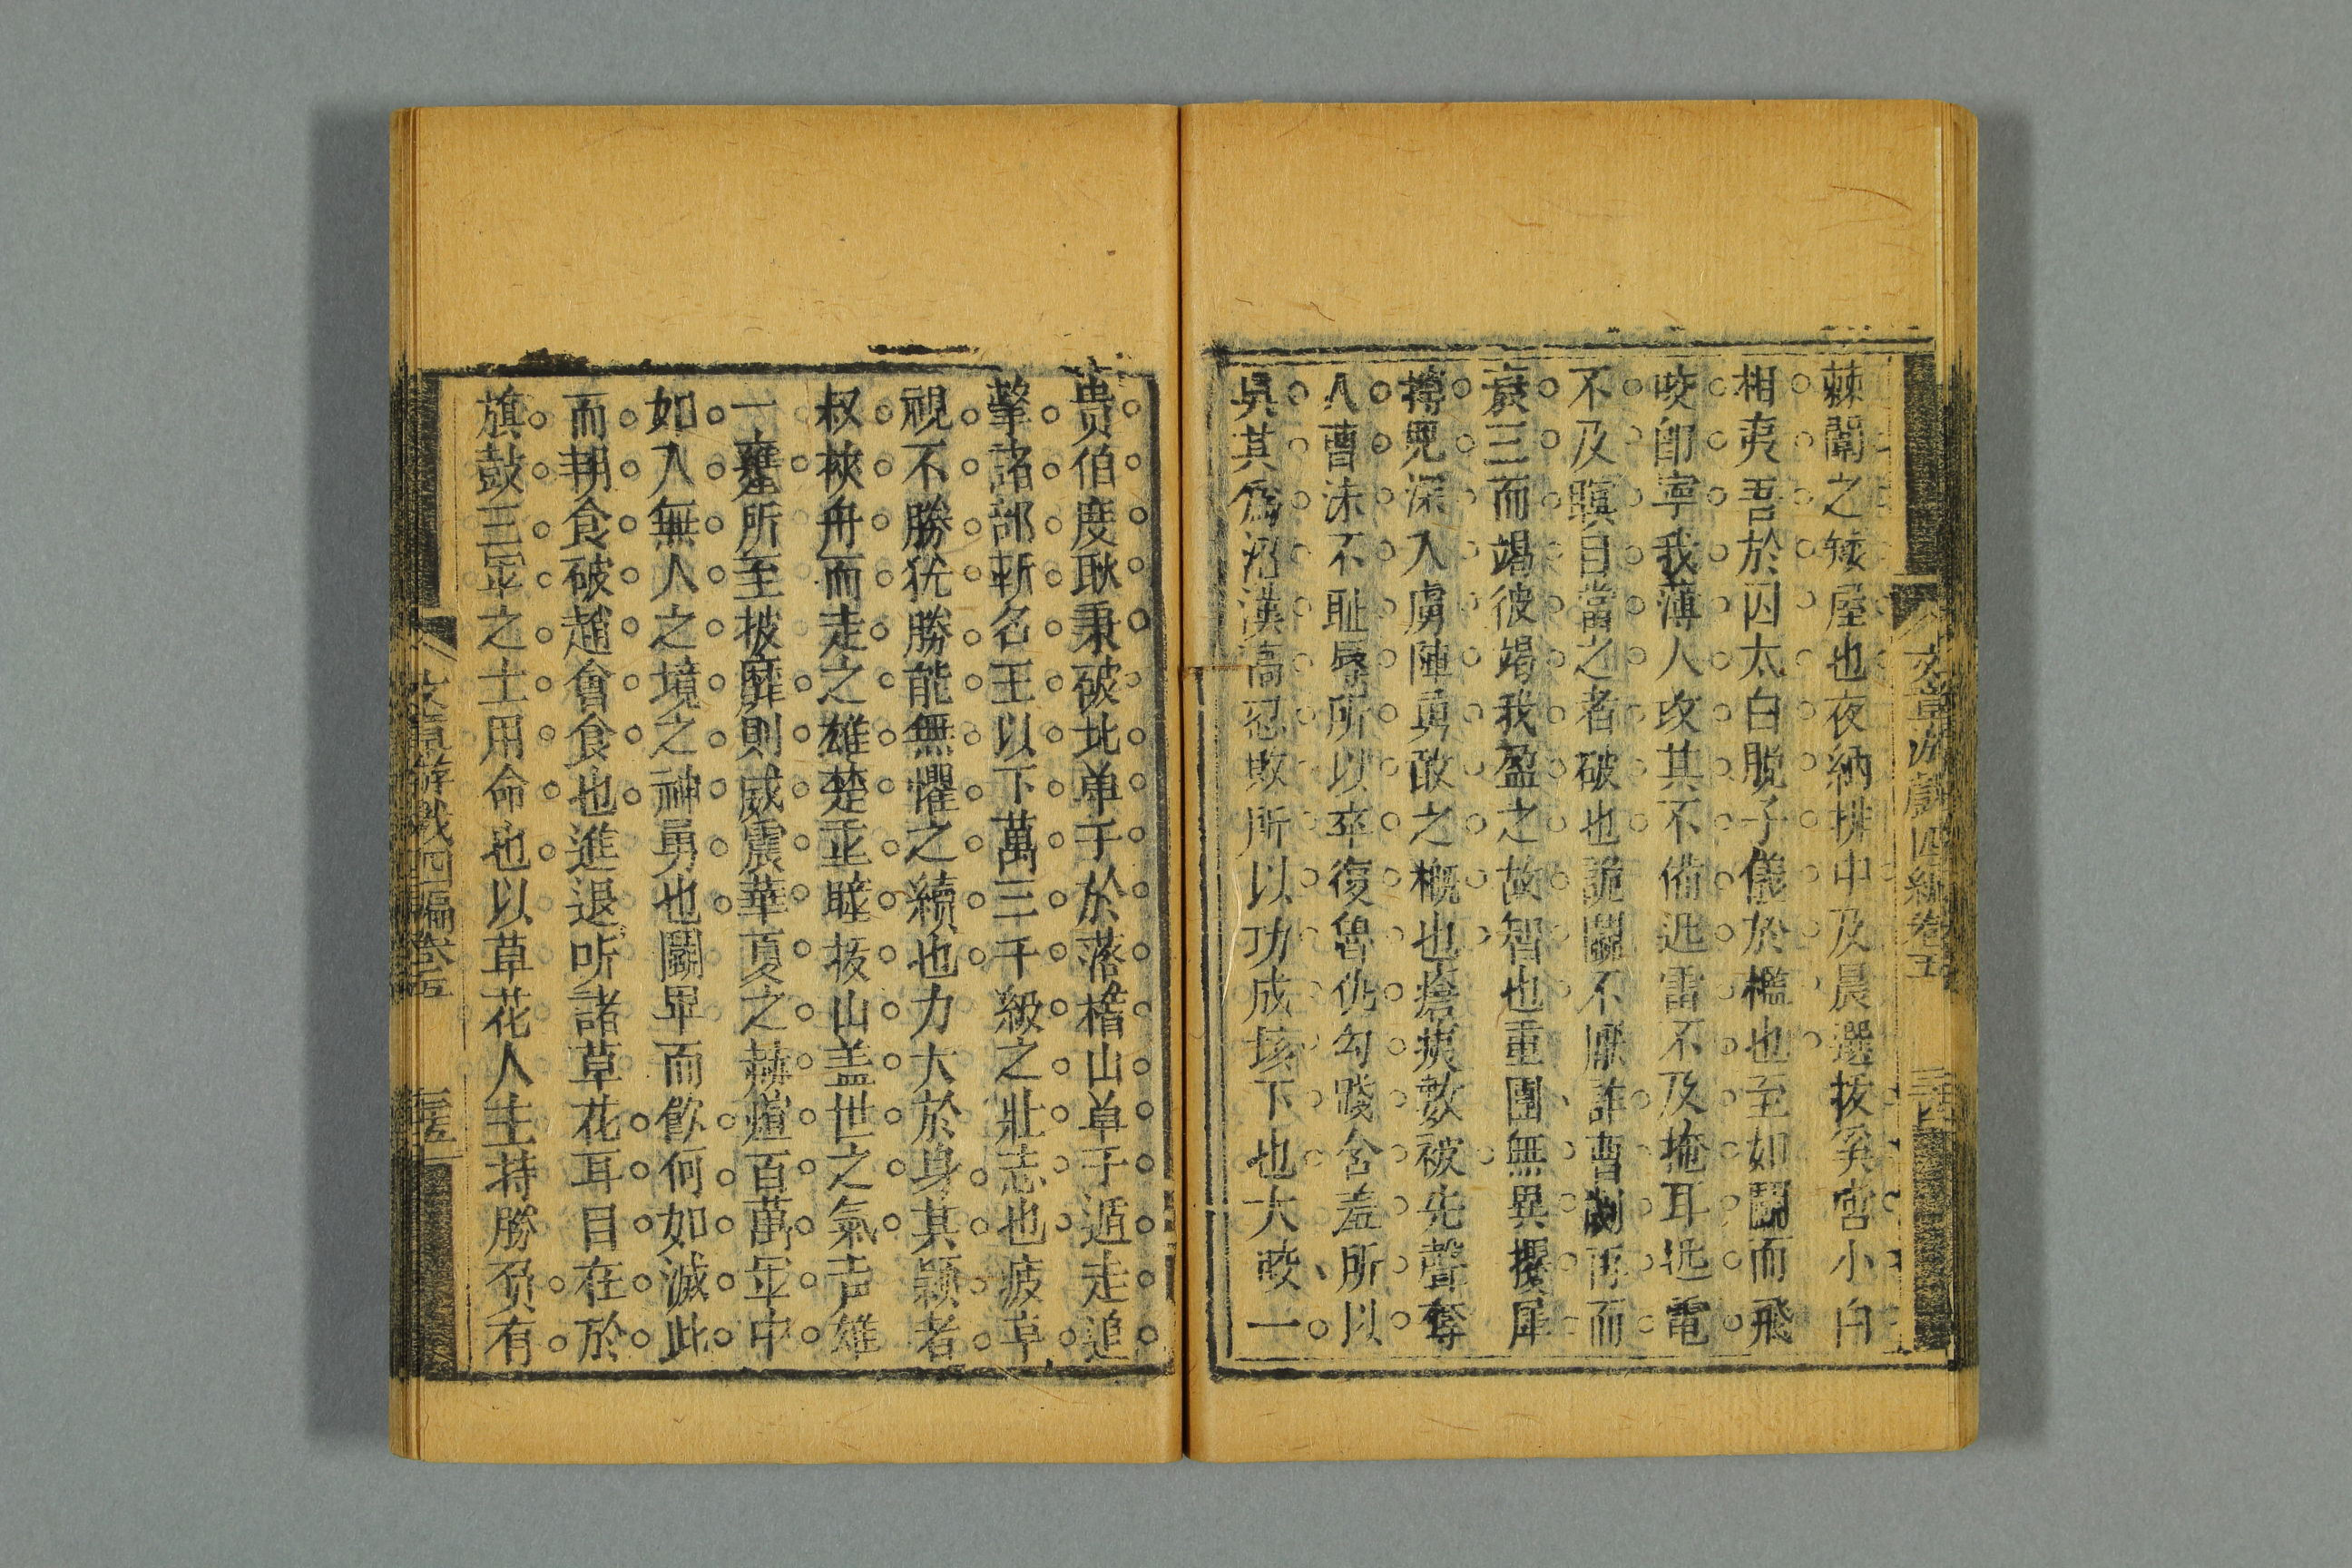 文章游戲四編卷五
棘闈之矮屋也夜納排中及晨選拔奚啻小白
相夷吾於囚太白脱子儀於檻也至如鬬而飛
咬卽寧我薄人攻其不備迅雷不及掩耳迅電
不及瞑目當之者破也詭鬬不厭詐曹劌再而
衰三而竭彼竭我盈之故智也重圍無異攖犀
搏兕深入虜陣勇敢之概也瘡痍數被先聲奪
人曹沬不耻辱所以卒復魯仇勾踐含羞所以
吳其爲沼漢高忍敗所以功成垓下也大咬一
貴伯度耿秉破北单于於落稽山单于遁走追
擊諸部斬名王以下萬三千級之壯志也疲卓
視不勝犹勝能無懼之續也力大於身其潁考
叔挾舟而走之雄楚重瞳拔山盖世之氣声雄
一麾所至披靡則威震華夏之赫煊百萬军中
如入無人之境之神勇也鬬畢而飲何如滅此
而朝食破趙會食也進退听諸草花耳目在於
旗鼓三军之士用命也以草花人主持勝负有
文章游戲四編卷五